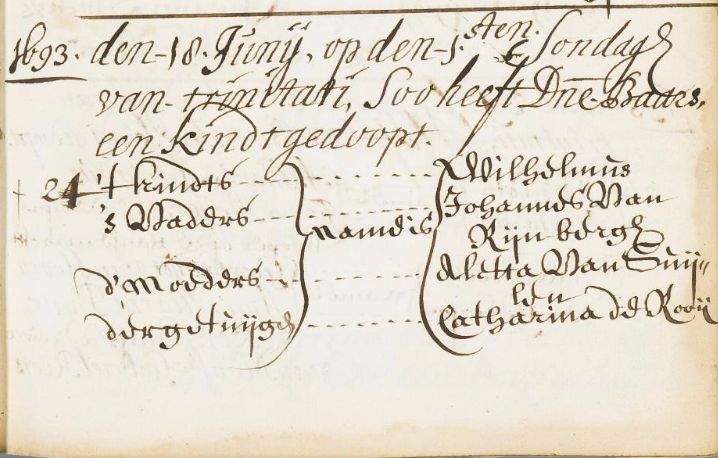 1693. den 18. Junij, op den 1.sten. Sondagh
van trinitati, Soo heeft Dne. Baars,
een kindt gedoopt.
24 't kindts } { Wilhelmus
's Vaders } namen is { Johannes Van
Rijnbergh
d'Moeders } { Aletta Van Suij„
len
der getuijgen } { Catharina de Rooij